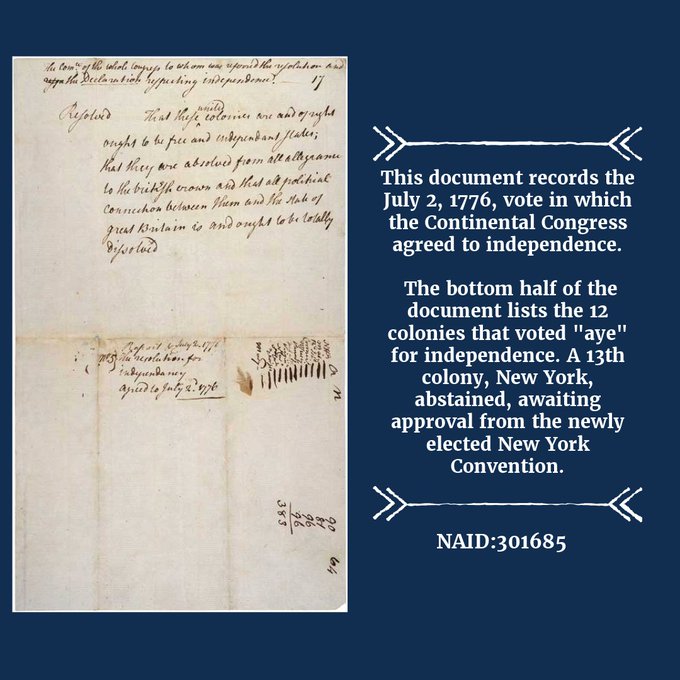 The Comee. of the whole Congress to whom was referred the resolution and
the Declaration respecting independence.
17
Resolved That these united colonies are and of right
ought to be free and independant states;
that they are absolved from all allegiance
to the british crown and that all political
connection between them and the state of
great Britain is and ought to be totally
dissolved
Report
July 2. 1776
No. 5
the resolution for
independancy
agreed to July 2d. 1776
90
81
96
96
383
64
This document records the
July 2, 1776, vote in which
the Continental Congress
agreed to independence.
The bottom half of the
document lists the 12
colonies that voted "aye"
for independence. A 13th
colony, New York,
abstained, awaiting
approval from the newly
elected New York
Convention.
NAID:301685